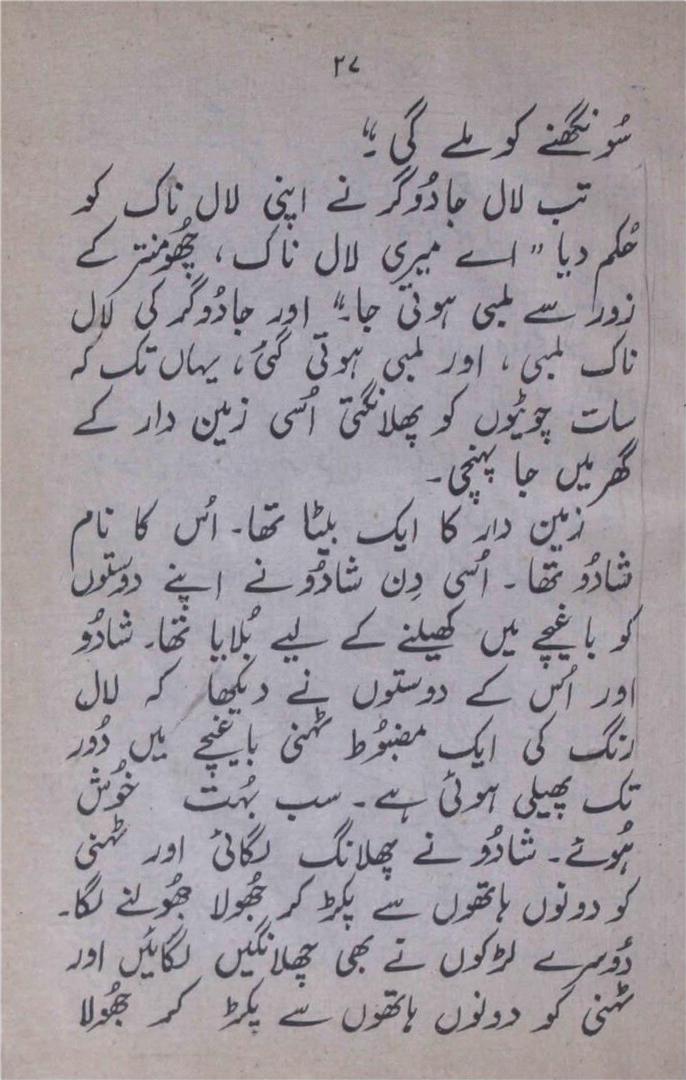 ۲۷
سُونگھنے کو ملے گی ۔"
تب لال جادُوگر نے اپنی لال ناک کو
حُکم دیا " اے میری لال ناک ، چھُومنتر کے
زور سے لمبی ہوتی جا۔" اور جادُوگر کی لال
ناک لمبی ، اور لمبی ہوتی گئی ، یہاں تک کہ
سات چوٹیوں کو پھلانگتی اُسی زمین دار کے
گھر میں جا پہنچی ۔
زمین دار کا ایک بیٹا تھا۔ اُس کا نام
شادُو تھا ۔ اُسی دِن شادُو نے اپنے دوستوں
کو باغیچے میں کھیلنے کے لیے بُلایا تھا۔ شادُو
اور اُس کے دوستوں نے دیکھا کہ لال
رنگ کی ایک مضبُوط ٹہنی باغیچے میں دُور
تک پھیلی ہوئی ہے ۔ سب بہُت خُوش
ہُوئے ۔ شادُو نے چھلانگ لگائی اور ٹہنی
کو دونوں ہاتھوں سے پکڑ کر جُھولا جُھولنے لگا۔
دُوسرے لڑکوں نے بھی چھلانگیں لگائیں اور
ٹہنی کو دونوں ہاتھوں سے پکڑ کر جُھولا